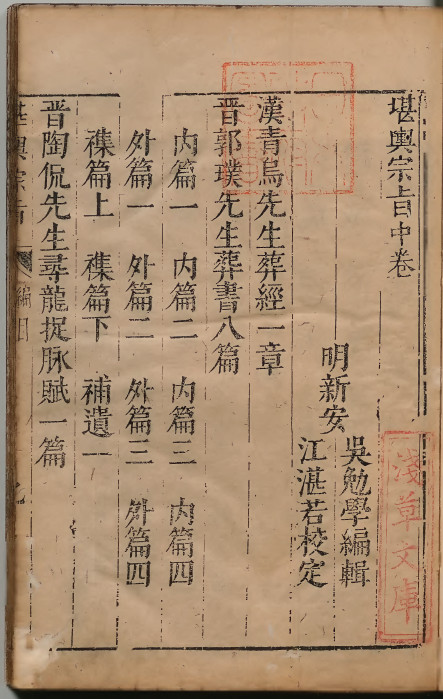 堪輿宗旨中卷
明新安
吳勉學編輯
江湛若校定
漢青烏先生葬經一章
晋郭璞先生葬書八篇
内篇一　内篇二　内篇三　内篇四
外篇一　外篇二　外篇三　外篇四
襍篇上　襍篇下　補遺一
晋陶侃先生尋龍捉脉賦一篇
堪輿宗旨
淺草文庫